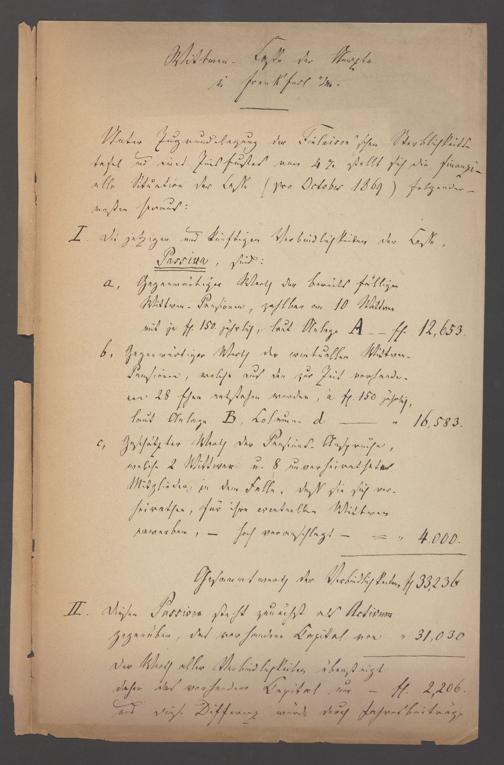 Wittwen-Casse der Aerzte
in Frankfurt a/M.
Unter Zugrundelegung der Finlaison'schen Sterblichkeits-
tafel und eines Zinsfußes von 4% stellt sich die finanzi-
elle Situation der Casse (pro October 1869) folgender-
maßen heraus:
I. Die jetzigen und künftigen Verbindlichkeiten der Casse,
Passiva, sind:
a, Gegenwärtiger Werth der bereits fälligen
Wittwen-Pensionen, zahlbar an 10 Wittwen
mit je fl. 150 jährlich, laut Anlage A — fl. 12,653.
b, Gegenwärtiger Werth der eventuellen Wittwen-
Pensionen, welche aus den zur Zeit vorhande-
nen 28 Ehen entstehen werden, à fl. 150 jährlich,
laut Anlage B, Columne d — " 16,583.
c, Geschätzter Werth der Pensions-Ansprüche,
welche 2 Wittwer u. 8 unverheirathete
Mitglieder, in dem Falle, daß sie sich ver-
heirathen, für ihre eventuellen Wittwen
erwerben, — hoch veranschlagt — = " 4.000.
Gesammtwerth der Verbindlichkeiten, fl 33,236
II. Diesen Passiven steht zunächst als Activum
gegenüber, das vorhandene Capital von " 31,030
Der Werth aller Verbindlichkeiten übersteigt
daher das vorhandene Capital um — fl. 2,206.
und diese Differenz würde durch Jahresbeiträge